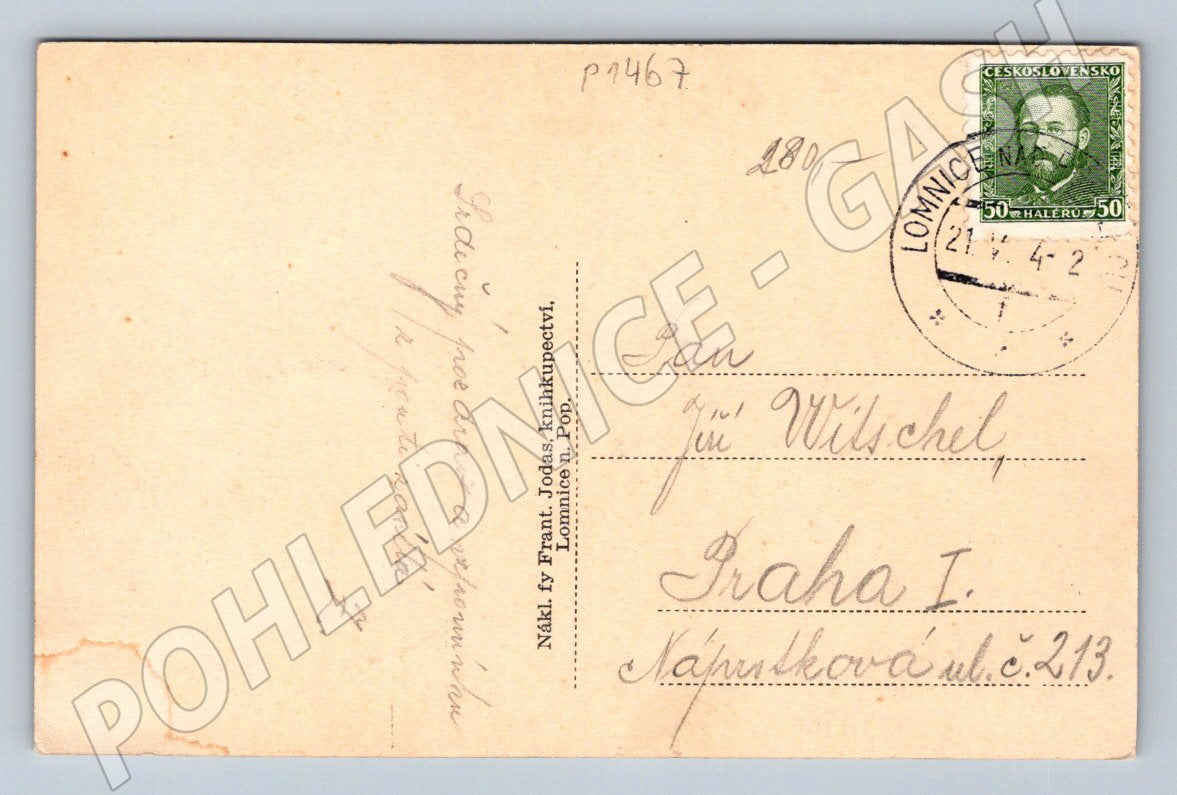 P1467
280,—
ČESKOSLOVENSKO
50 HALÉŘŮ 50
LOMNICE NAD
21. V 4-2
Srdečný pozdrav a vzpomínku
z
Nákl. fy Frant. Jodas, knihkupectví,
Lomnice n. Pop.
Pan
Jiří Witschel,
Praha I.
Náprstková ul. č. 213.
POHLEDNICE - GASH